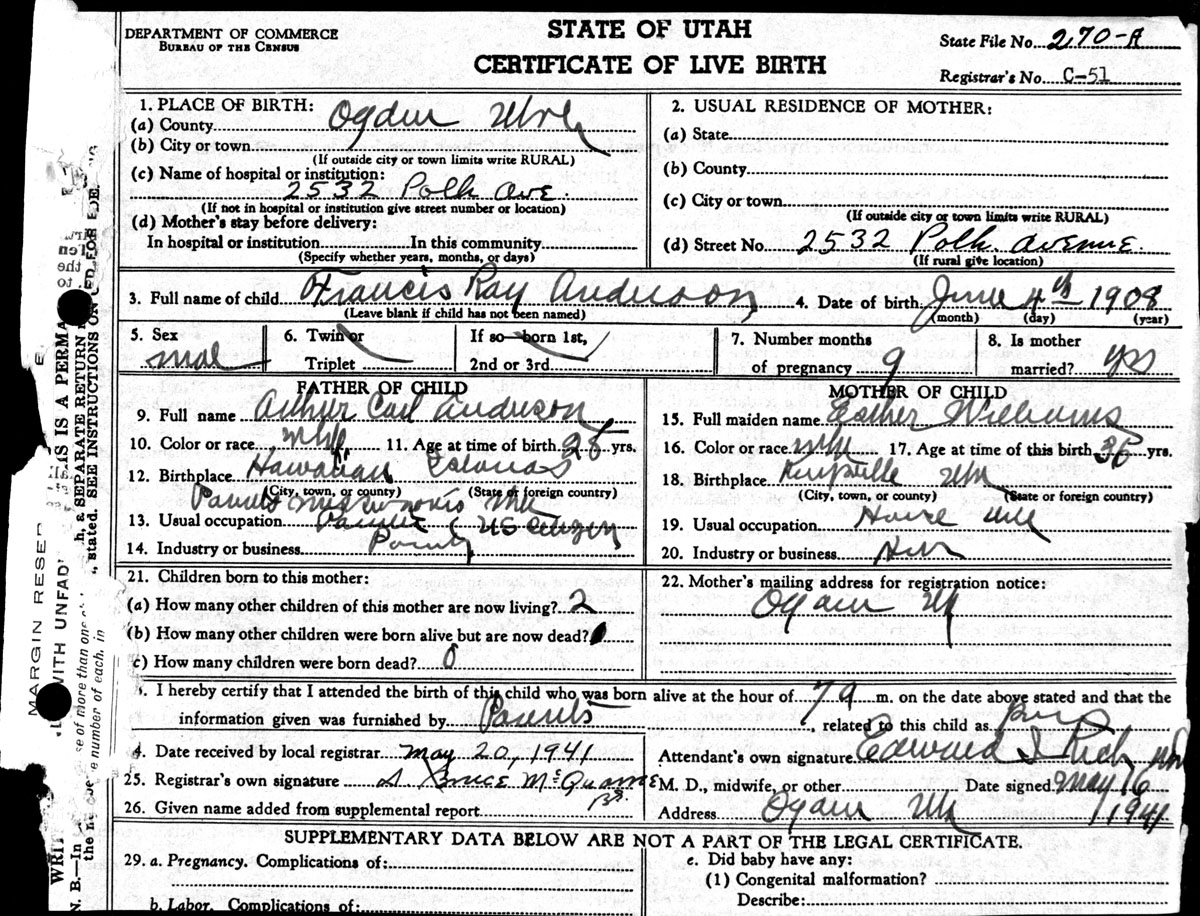 DEPARTMENT OF COMMERCE
BUREAU OF THE CENSUS
STATE OF UTAH
CERTIFICATE OF LIVE BIRTH
State File No. 270-A
Registrar's No. C-51
1. PLACE OF BIRTH:
(a) County Ogden
(b) City or town
(If outside city or town limits write RURAL)
(c) Name of hospital or institution:
2532 Polk Ave.
(If not in hospital or institution give street number or location)
(d) Mother's stay before delivery:
In hospital or institution In this community
(Specify whether years, months, or days)
2. USUAL RESIDENCE OF MOTHER:
(a) State
(b) County
(c) City or town
(If outside city or town limits write RURAL)
(d) Street No. 2532 Polk Avenue
(If rural give location)
3. Full name of child Francis Ray Anderson 4. Date of birth June 4th 1908
(Leave blank if child has not been named) (month) (day) (year)
5. Sex
Male
6. Twin or
Triplet
If so born 1st,
2nd or 3rd
7. Number months
of pregnancy 9
8. Is mother
married? yes
FATHER OF CHILD
9. Full name Arthur Carl Anderson
10. Color or race 11. Age at time of birth 28 yrs.
12. Birthplace Hawaiian Islands
(City, town, or county) (State or foreign country)
Parents
13. Usual occupation US Citizen
14. Industry or business
MOTHER OF CHILD
15. Full maiden name Esther Williams
16. Color or race 17. Age at time of this birth yrs.
18. Birthplace
(City, town, or county) (State or foreign country)
19. Usual occupation House
20. Industry or business
21. Children born to this mother:
(a) How many other children of this mother are now living? 2
(b) How many other children were born alive but are now dead?
c) How many children were born dead? 0
22. Mother's mailing address for registration notice:
Ogden
I hereby certify that I attended the birth of this child who was born alive at the hour of 7 a m. on the date above stated and that the
information given was furnished by Parents, related to this child as
4. Date received by local registrar May 20, 1941
25. Registrar's own signature
26. Given name added from supplemental report
Attendant's own signature Edward I Rich MD
M. D., midwife, or other Date signed May 16
Address Ogden 1941
SUPPLEMENTARY DATA BELOW ARE NOT A PART OF THE LEGAL CERTIFICATE.
29. a. Pregnancy. Complications of:
b. Labor. Complications of:
e. Did baby have any:
(1) Congenital malformation?
Describe:
MARGIN RESER
WITH UNFAD
IS IS A PERMA
SEPARATE RETURN
stated. SEE INSTRUCTIONS ON
se of more than one
number of each, in
WRIT
N. B.—In